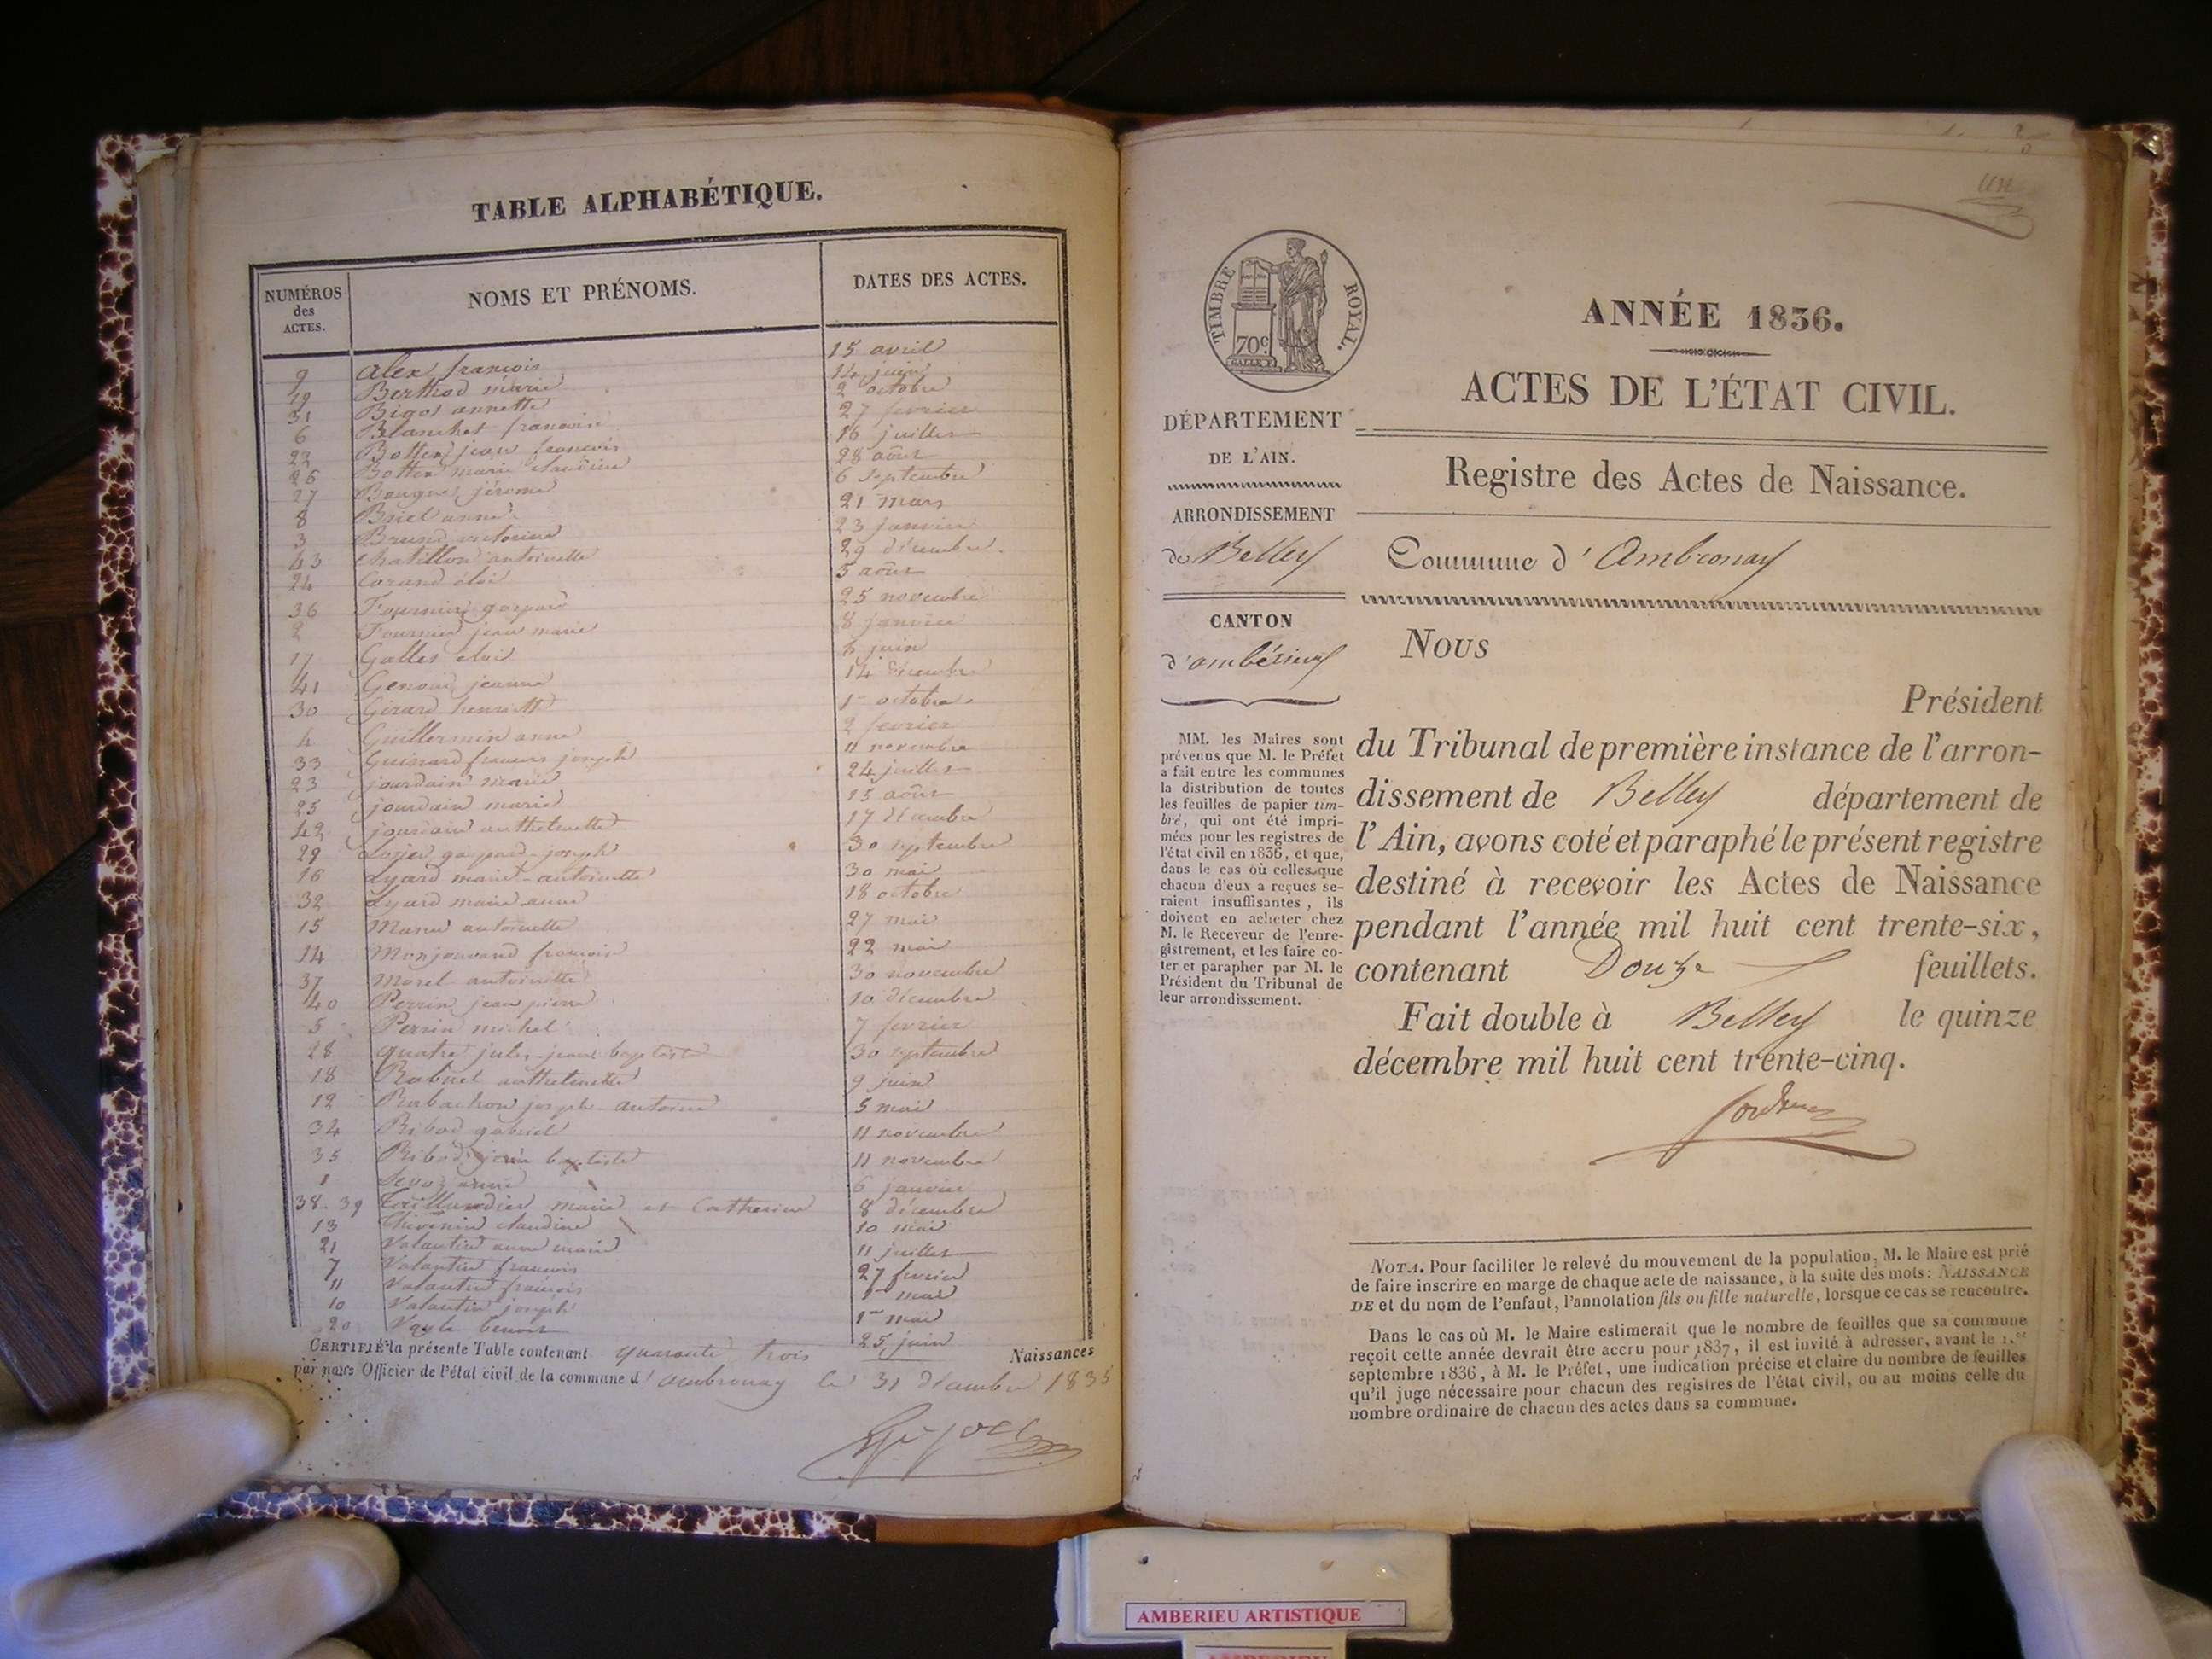 TABLE ALPHABÉTIQUE.
NUMÉROS des ACTES. NOMS ET PRÉNOMS. DATES DES ACTES.
9 alex françois 15 avril
19 Berthod marie 14 juin
31 Bigot annette 2 octobre
6 Blanchet françoise 27 fevrier
22 Bottex jean françois 16 juillet
26 Bottex marie claudine 28 août
27 jérome 6 septembre
8 Briel anne 21 mars
3 Brund victorine 23 janvier
43 chatillon antoinette 29 décembre
24 Corand éloi 5 août
36 Fournier gaspard 25 novembre
2 Fournier jean marie 8 janvier
17 Gallet eloi juin
41 Genoud jeanne 14 décembre
30 Girard henriette 1er octobre
4 Guillermin anne 2 fevrier
33 Guinard françois joseph 11 novembre
23 jourdain marie 24 juillet
25 jourdain marie 15 août
42 jourdain anthelmette 17 décembre
29 gaspard-joseph 30 septembre
16 Lyard marie-antoinette 30 mai
32 Lyard marie anne 18 octobre
15 antoinette 27 mai
14 Monjouvand françois 22 mai
37 Morel antoinette 30 novembre
40 Perrin jean pierre 10 décembre
5 Perrin michel 7 fevrier
28 quatre jules-jean baptiste 30 septembre
18 anthelmette 9 juin
12 Rabachon joseph-antoine 5 mai
34 Ribod gabriel 11 novembre
35 Ribod jean baptiste 11 novembre
1 Sevoz anne 6 janvier
38-39 Taillandier marie et Catherine 8 décembre
13 Thévenin claudine 10 mai
21 Valantin anne marie 11 juillet
7 Valantin françois 27 fevrier
11 Valantin françois 1er mai
10 Valantin joseph 1er mai
20 benoit 25 juin
CERTIFIÉ la présente Table contenant quarante trois Naissances
par nous Officier de l'état civil de la commune d'ambronay le 31 décembre 1835
un
TIMBRE ROYAL.
70c
ANNÉE 1836.
ACTES DE L'ÉTAT CIVIL.
DÉPARTEMENT
DE L'AIN.
Registre des Actes de Naissance.
ARRONDISSEMENT
de Belley
Commune d'Ambronay
CANTON
d'ambérieux
Nous
Président
du Tribunal de première instance de l'arron-
dissement de Belley département de
l'Ain, avons coté et paraphé le présent registre
destiné à recevoir les Actes de Naissance
pendant l'année mil huit cent trente-six,
contenant Douze feuillets.
Fait double à Belley le quinze
décembre mil huit cent trente-cinq.
MM. les Maires sont
prévenus que M. le Préfet
a fait entre les communes
la distribution de toutes
les feuilles de papier tim-
bré, qui ont été impri-
mées pour les registres de
l'état civil en 1836, et que,
dans le cas où celles que
chacun d'eux a reçues se-
raient insuffisantes, ils
doivent en acheter chez
M. le Receveur de l'enre-
gistrement, et les faire co-
ter et parapher par M. le
Président du Tribunal de
leur arrondissement.
NOTA. Pour faciliter le relevé du mouvement de la population, M. le Maire est prié
de faire inscrire en marge de chaque acte de naissance, à la suite des mots: NAISSANCE
DE et du nom de l'enfant, l'annotation fils ou fille naturelle, lorsque ce cas se rencontre.
Dans le cas où M. le Maire estimerait que le nombre de feuilles que sa commune
reçoit cette année devrait être accru pour 1837, il est invité à adresser, avant le 1.er
septembre 1836, à M. le Préfet, une indication précise et claire du nombre de feuilles
qu'il juge nécessaire pour chacun des registres de l'état civil, ou au moins celle du
nombre ordinaire de chacun des actes dans sa commune.
AMBERIEU ARTISTIQUE